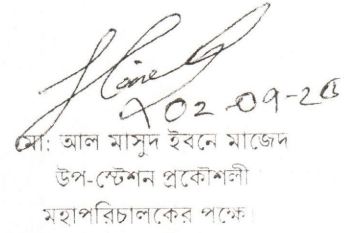 02-09-20
মো: আল মাসুদ ইবনে মাজেদ
উপ-স্টেশন প্রকৌশলী
মহাপরিচালকের পক্ষে